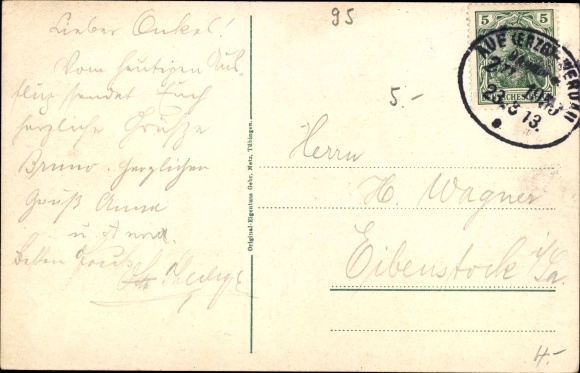 Lieber Onkel!
Vom heutigen Aus-
flug sendet Euch
herzliche Grüße
Bruno. Herzlichen
Gruß Anna
u.
95
5.-
5 5
AUE (ERZGEB.) WERDAU
23.3.13.
Original-Eigentum Gebr. Metz, Tübingen.
Herrn
H. Wagner
Eibenstock i/Sa.
4.-